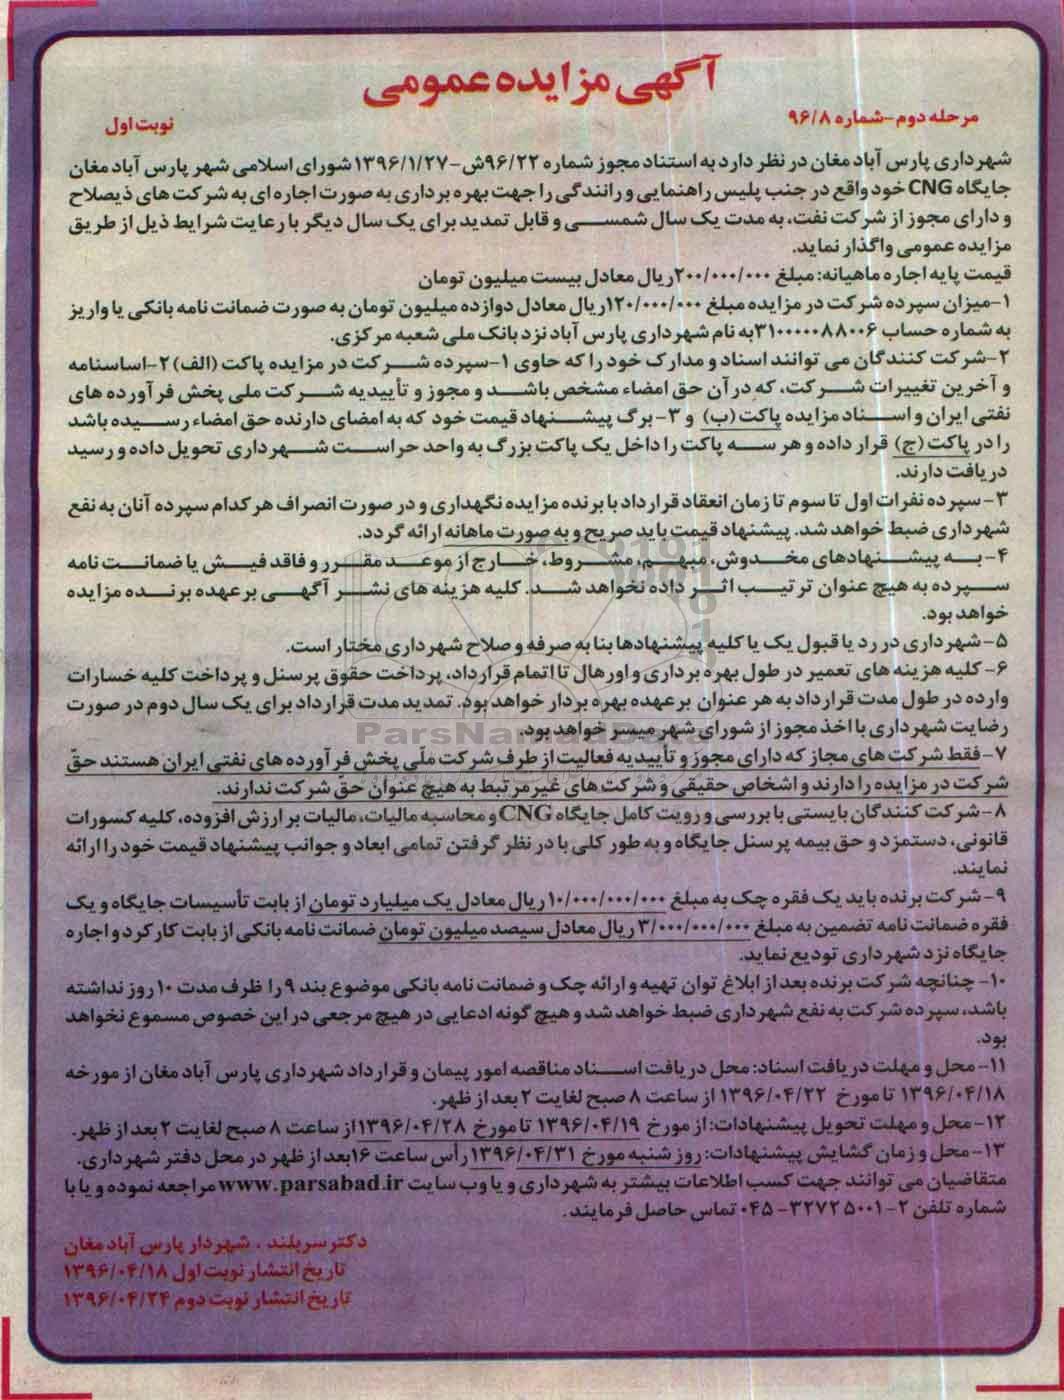 آگهی مزایده عمومی
مرحله دوم-شماره ۹۶/۸
نوبت اول
شهرداری پارس آباد مغان در نظر دارد به استناد مجوز شماره ۹۶/۲۲ش-۱۳۹۶/۱/۲۷ شورای اسلامی شهر پارس آباد مغان
جایگاه CNG خود واقع در جنب پلیس راهنمایی و رانندگی را جهت بهره برداری به صورت اجاره ای به شرکت های ذیصلاح
و دارای مجوز از شرکت نفت، به مدت یک سال شمسی و قابل تمدید برای یک سال دیگر با رعایت شرایط ذیل از طریق
مزایده عمومی واگذار نماید.
قیمت پایه اجاره ماهیانه: مبلغ ۲۰۰/۰۰۰/۰۰۰ریال معادل بیست میلیون تومان
۱-میزان سپرده شرکت در مزایده مبلغ ۱۲۰/۰۰۰/۰۰۰ریال معادل دوازده میلیون تومان به صورت ضمانت نامه بانکی یا واریز
به شماره حساب ۳۱۰۰۰۰۰۸۸۰۰۶به نام شهرداری پارس آباد نزد بانک ملی شعبه مرکزی.
۲-شرکت کنندگان می توانند اسناد و مدارک خود را که حاوی ۱-سپرده شرکت در مزایده پاکت (الف) ۲-اساسنامه
و آخرین تغییرات شرکت، که در آن حق امضاء مشخص باشد و مجوز و تأییدیه شرکت ملی پخش فرآورده های
نفتی ایران و اسناد مزایده پاکت (ب) و ۳-برگ پیشنهاد قیمت خود که به امضای دارنده حق امضاء رسیده باشد
را در پاکت (ج) قرار داده و هر سه پاکت را داخل یک پاکت بزرگ به واحد حراست شهرداری تحویل داده و رسید
دریافت دارند.
۳-سپرده نفرات اول تا سوم تا زمان انعقاد قرارداد با برنده مزایده نگهداری و در صورت انصراف هر کدام سپرده آنان به نفع
شهرداری ضبط خواهد شد. پیشنهاد قیمت باید صریح و به صورت ماهانه ارائه گردد.
۴-به پیشنهادهای مخدوش، مبهم، مشروط، خارج از موعد مقرر و فاقد فیش یا ضمانت نامه
سپرده به هیچ عنوان ترتیب اثر داده نخواهد شد. کلیه هزینه های نشر آگهی بر عهده برنده مزایده
خواهد بود.
۵-شهرداری در رد یا قبول یک یا کلیه پیشنهادها بنا به صرفه و صلاح شهرداری مختار است.
۶-کلیه هزینه های تعمیر در طول بهره برداری و اورهال تا اتمام قرارداد، پرداخت حقوق پرسنل و پرداخت کلیه خسارات
وارده در طول مدت قرارداد به هر عنوان بر عهده بهره بردار خواهد بود. تمدید مدت قرارداد برای یک سال دوم در صورت
رضایت شهرداری با اخذ مجوز از شورای شهر میسر خواهد بود.
۷-فقط شرکت های مجاز که دارای مجوز و تأییدیه فعالیت از طرف شرکت ملّی پخش فرآورده های نفتی ایران هستند حقّ
شرکت در مزایده را دارند و اشخاص حقیقی و شرکت های غیر مرتبط به هیچ عنوان حقّ شرکت ندارند.
۸-شرکت کنندگان بایستی با بررسی و رویت کامل جایگاه CNG و محاسبه مالیات، مالیات بر ارزش افزوده، کلیه کسورات
قانونی، دستمزد و حق بیمه پرسنل جایگاه و به طور کلی با در نظر گرفتن تمامی ابعاد و جوانب پیشنهاد قیمت خود را ارائه
نمایند.
۹-شرکت برنده باید یک فقره چک به مبلغ ۱۰/۰۰۰/۰۰۰/۰۰۰ ریال معادل یک میلیارد تومان از بابت تأسیسات جایگاه و یک
فقره ضمانت نامه تضمین به مبلغ ۳/۰۰۰/۰۰۰/۰۰۰ ریال معادل سیصد میلیون تومان ضمانت نامه بانکی از بابت کارکرد و اجاره
جایگاه نزد شهرداری تودیع نماید.
۱۰- چنانچه شرکت برنده بعد از ابلاغ توان تهیه و ارائه چک و ضمانت نامه بانکی موضوع بند ۹ را ظرف مدت ۱۰ روز نداشته
باشد، سپرده شرکت به نفع شهرداری ضبط خواهد شد و هیچ گونه ادعایی در هیچ مرجعی در این خصوص مسموع نخواهد
بود.
۱۱- محل و مهلت دریافت اسناد: محل دریافت اسناد مناقصه امور پیمان و قرارداد شهرداری پارس آباد مغان از مورخه
۱۳۹۶/۰۴/۱۸ تا مورخ ۱۳۹۶/۰۴/۲۲ از ساعت ۸ صبح لغایت ۲ بعد از ظهر.
۱۲-محل و مهلت تحویل پیشنهادات: از مورخ ۱۳۹۶/۰۴/۱۹ تا مورخ ۱۳۹۶/۰۴/۲۸ از ساعت ۸ صبح لغایت ۲ بعد از ظهر.
۱۳-محل و زمان گشایش پیشنهادات: روز شنبه مورخ ۱۳۹۶/۰۴/۳۱ رأس ساعت ۱۶بعد از ظهر در محل دفتر شهرداری.
متقاضیان می توانند جهت کسب اطلاعات بیشتر به شهرداری و یا وب سایت www.parsabad.ir مراجعه نموده و یا با
شماره تلفن ۲-۳۲۷۲۵۰۰۱-۰۴۵ تماس حاصل فرمایند.
دکتر سربلند ، شهردار پارس آباد مغان
تاریخ انتشار نوبت اول ۱۳۹۶/۰۴/۱۸
تاریخ انتشار نوبت دوم ۱۳۹۶/۰۴/۲۴
ParsNamadData